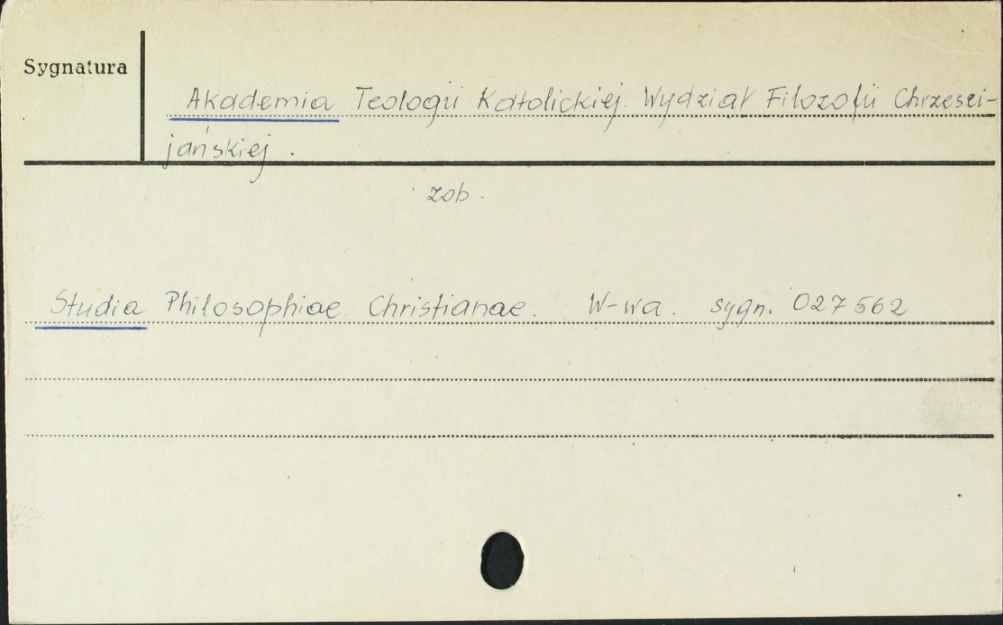 Sygnatura
Akademia Teologii Katolickiej. Wydział Filozofii Chrzesci-
jańskiej.
zob.
Studia Philosophiae Christianae. W-wa. sygn. 027562